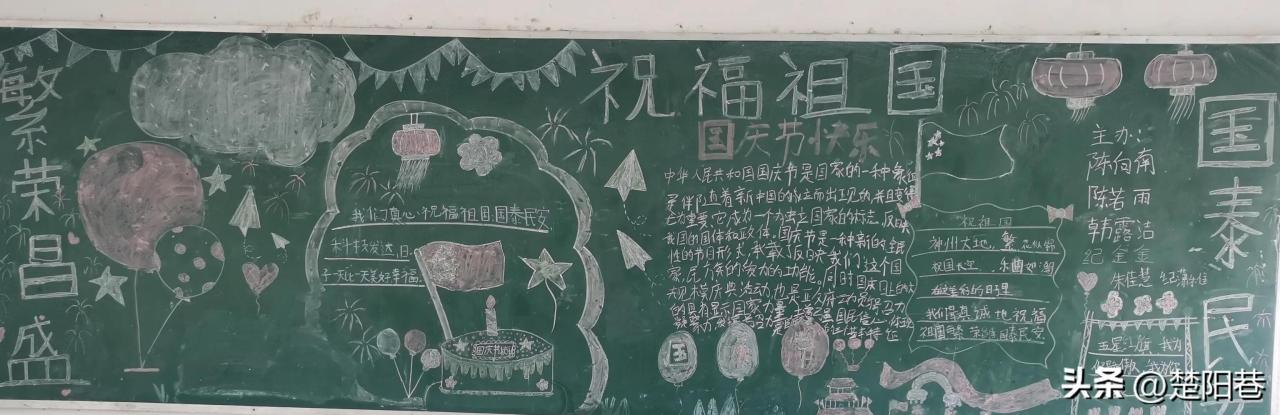 繁荣昌盛
祝福祖国
国庆节快乐
我们真心祝福祖国国泰民安
科技发达,日
子一天比一天美好幸福.
中华人民共和国国庆节是国家的一种象征
是伴随着新中国的成立而出现的,并且变得
尤为重要.它成为一个独立国家的标志,反映
我国的国体和政体.国庆节是一种新的全民
性的节日形式,承载了反映我们这个国
家,民族的凝聚力的功能.同时国庆日上的大
规模庆典活动也是政府动员与号召力
的具有显示国家力量
祝祖国
神州大地,繁花似锦
祖国长空,乐曲如潮
在这美好的日里
我们深真诚地祝福
祖国繁荣昌盛国泰民安
主办:
陈向南
陈若雨
韩露洁
纪金金
朱佳慧
国泰民
五星红旗 我为
你骄傲
国
头条@楚阳巷